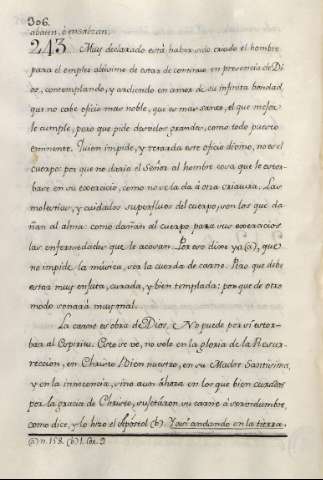 306.
abaten, ó ensalzan.
243 Muy declarado está haber sido criado el hombre
para el empleo altísimo de estar de continuo en presencia de Di
os, contemplando, y ardiendo en amor de su infinita bondad,
que no cabe oficio mas noble, que es mas santo, el que mejor
le cumple, pero que pide desvelos grandes, como todo puesto
eminente. Quien impide, y retarda este oficio divino, no es el
cuerpo: por que no diera el Señor al hombre cosa que le estor-
base en su exercicio, como no se la da á otra criatura. Las
molestias, y cuidados superfluos del cuerpo, son las que da
ñan al alma: como dañan al cuerpo para sus exercicios
las enfermedades que le acosan. Por eso dixe ya (a), que
no impide la música, sea la cuerda de carne. Pero que debe
estar muy enjuta, curada, y bien templada: por que de otro
modo sonará muy mal.
La carne es obra de Dios. No puede por sí estor-
bar al Espíritu. Esto se ve, no solo en la gloria de la Resur-
reccion, en Christo Bien nuestro, en su Madre Santísima,
y en la inocencia, sino aun ahora en los que bien curados
por la gracia de Christo, sujetáron su carne á servidumbre,
como dice, y lo hizo el Apostol (b). Y así andando en la tierra,
(a) n. 158. (b) 1. Cor. 9